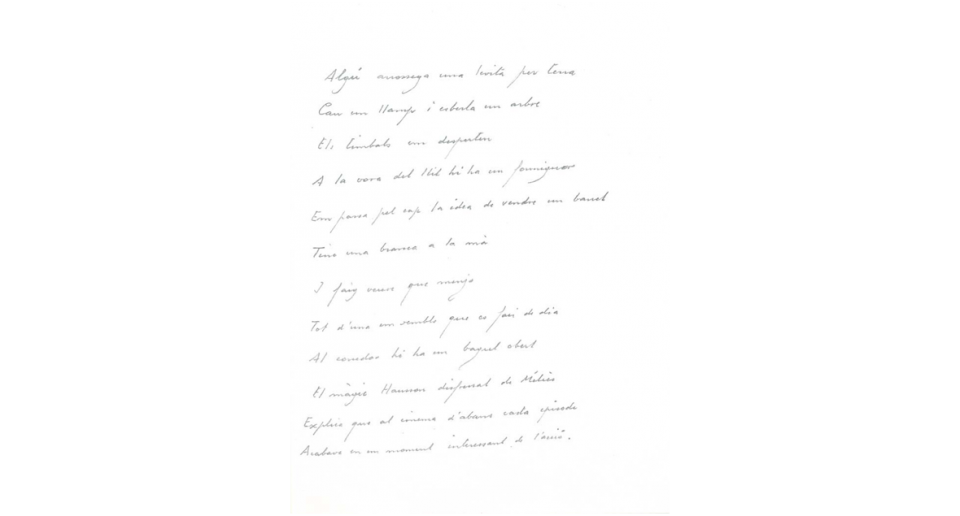 Algú arrossega una levita per terra
Cau un llamp i esberla un arbre
Els timbals em desperten
A la vora del llit hi ha un formiguer
Em passa pel cap la idea de vendre un barret
Tinc una branca a la mà
I faig veure que menjo
Tot d'una em sembla que es farà de dia
Al corredor hi ha un bagul obert
El màgic Hanson disfressat de Méliès
Explica que al cinema d'abans cada episodi
Acabava en un moment interessant de l'acció.